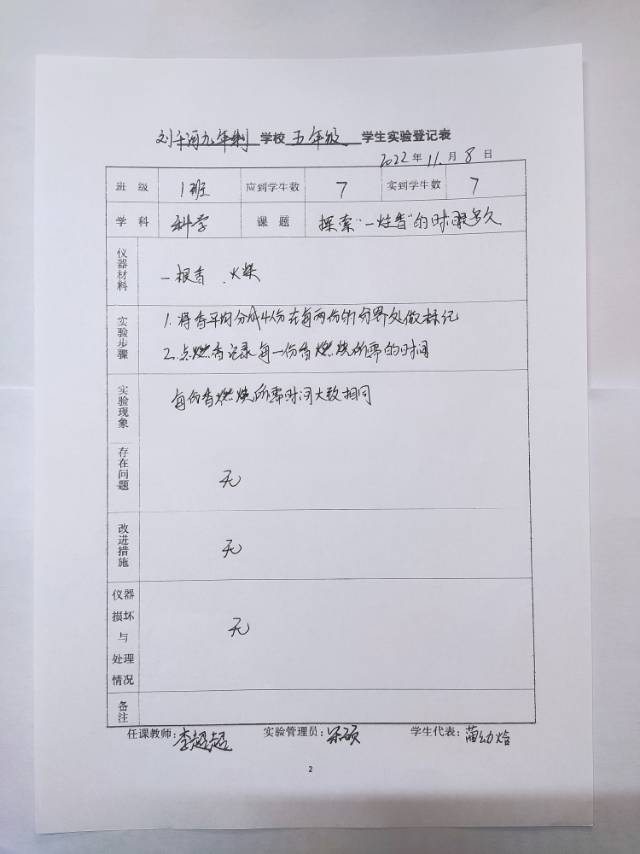 刘千河九年制 学校 五年级 学生实验登记表
2022 年 11 月 8 日
班 级 1班 应到学生数 7 实到学生数 7
学 科 科学 课 题 探索“一炷香”的时间多久
仪器材料 一根香、火柴
实验步骤 1.将香平均分成4份在每两份的分界处做标记
2.点燃香记录每一份香燃烧所需的时间
实验现象 每份香燃烧所需时间大致相同
存在问题 无
改进措施 无
仪器损坏与处理情况 无
备注
任课教师:李超超 实验管理员: 学生代表:
2